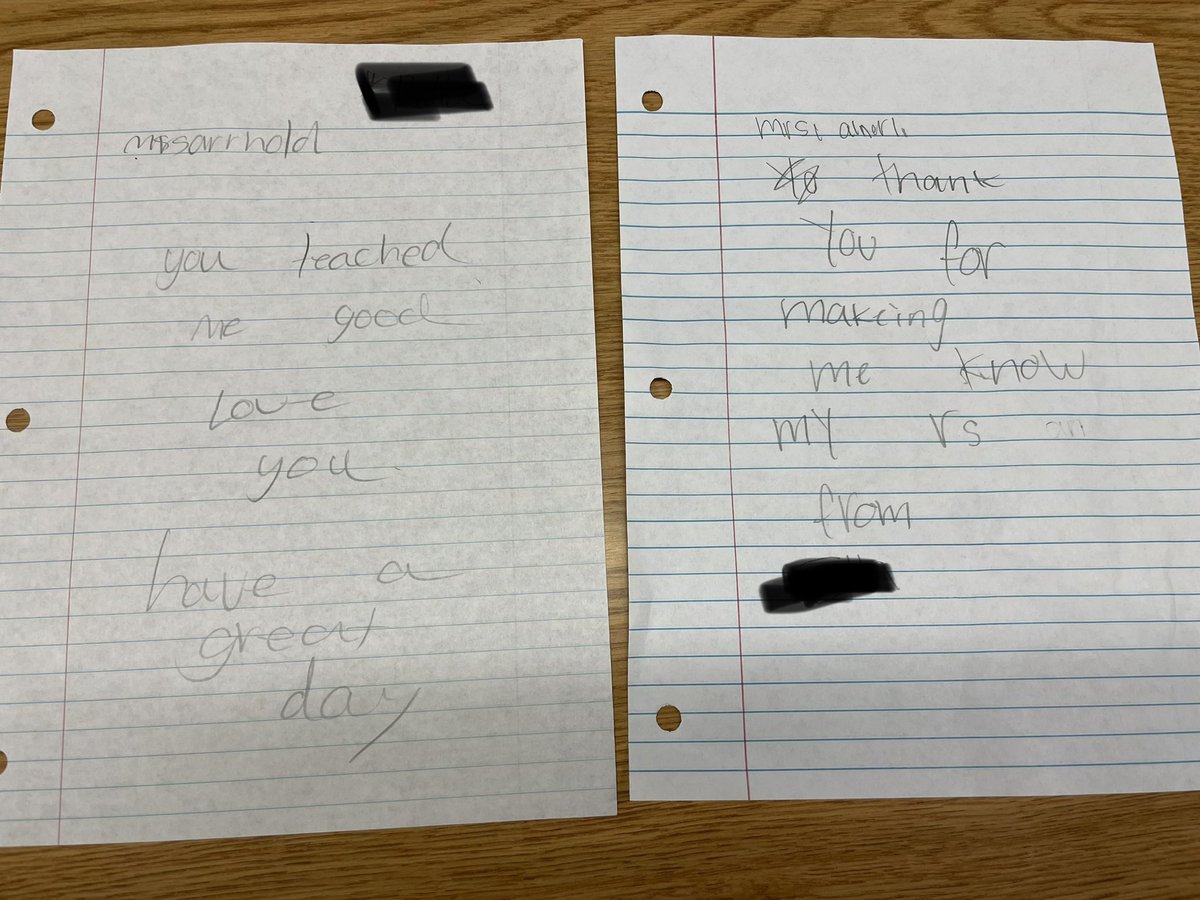 mrssarrhold
you teached
me good
Love
you
have a
great
day
mrs.
thank
You for
makeing
me know
MY rs an
from